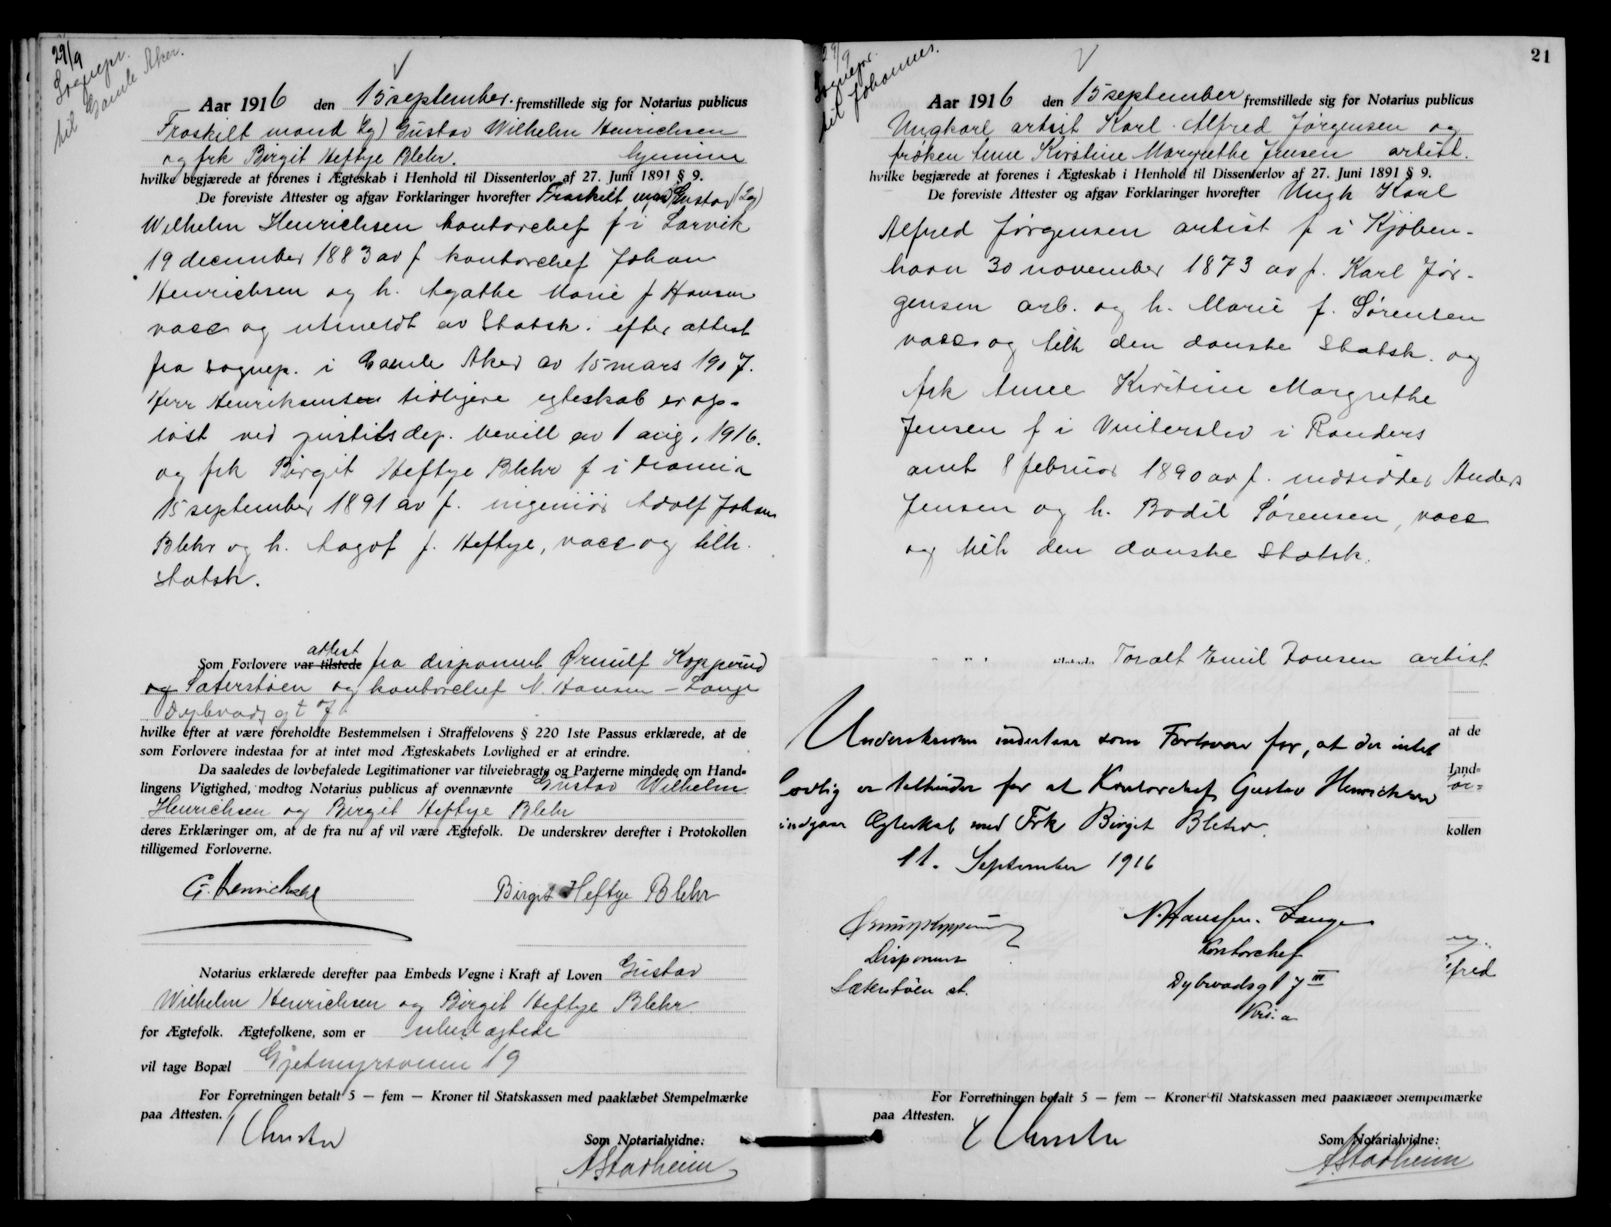 29/9
Sognepr.
til Gamle Aker.
Aar 1916 den 15 september. fremstillede sig for Notarius publicus
Fraskilt mand Gustav Wilhelm Henrichsen
og frk Birgit Heftye Blehr.
hvilke begjærede at forenes i Ægteskab i Henhold til Dissenterlov af 27. Juni 1891 § 9.
De foreviste Attester og afgav Forklaringer hvorefter Fraskilt mand Gustav
Wilhelm Henrichsen kontorchef f i Larvik
19 december 1883 av f kontorchef Johan
Henrichsen og h. Agathe Marie f Hansen
vacc og utmeldt av Statsk. efter attest
fra sognep. i Gamle Aker av 15 mars 1907.
Herr Henriksens tidligere egteskab er op-
løst ved justitsdep. bevill av 1 aug. 1916.
og frk Birgit Heftye Blehr f i
15 september 1891 av f. ingeniør Adolf Johan
Blehr og h. Aagot f. Heftye, vacc og tilh.
Statsk.
attest
Som Forlovere var tilstede fra disponent Ørnulf Kopperud
og Sæterstøen og kontorchef N. Hansen - Lange
Dybvadsgt 7
hvilke efter at være foreholdte Bestemmelsen i Straffelovens § 220 1ste Passus erklærede, at de
som Forlovere indestaa for at intet mod Ægteskabets Lovlighed er at erindre.
Da saaledes de lovbefalede Legitimationer var tilveiebragte og Parterne mindede om Hand-
lingens Vigtighed, modtog Notarius publicus af ovennævnte Gustav Wilhelm
Henrichsen og Birgit Heftye Blehr
deres Erklæringer om, at de fra nu af vil være Ægtefolk. De underskrev derefter i Protokollen
tilligemed Forloverne.
G. Henrichsen Birgit Heftye Blehr
Notarius erklærede derefter paa Embeds Vegne i Kraft af Loven Gustav
Wilhelm Henrichsen og Birgit Heftye Blehr
for Ægtefolk. Ægtefolkene, som er
vil tage Bopæl Gjetmyrsveien 19
For Forretningen betalt 5 — fem — Kroner til Statskassen med paaklæbet Stempelmærke
paa Attesten.
Som Notarialvidne:
AStadheim
21
29/9
Sognepr.
til Johannes.
Aar 1916 den 15 september fremstillede sig for Notarius publicus
Ungkarl artist Karl Alfred Jørgensen og
frøken Anne Kirstine Margrethe Jensen artist.
hvilke begjærede at forenes i Ægteskab i Henhold til Dissenterlov af 27. Juni 1891 § 9.
De foreviste Attester og afgav Forklaringer hvorefter Ungk Karl
Alfred Jørgensen artist f i Kjøben-
havn 30 november 1873 av f. Karl Jør-
gensen arb. og h. Marie f. Sørensen
vacc og tilh den danske Statsk. og
frk Anne Kirstine Margrethe
Jensen f i Vinterslev i Randers
amt 8 februar 1890 av f. indsidder Anders
Jensen og h. Bodil Sørensen, vacc
og tilh den danske Statsk.
Toralt Emil Jonsen artist
Underskreven indestaar som Forlover for, at der intet
lovlig er tilhinder for at Kontorchef Gustav Henrichsen
indgaar Ægteskab med Frk Birgit Blehr.
11. September 1916
Disponent
Sæterstøen st.
N. Hanssen-Lange
Kontorchef
Dybwadsgt 7 III
Kr.a
at de
land-
kollen
fred
For Forretningen betalt 5 — fem — Kroner til Statskassen med paaklæbet Stempelmærke
paa Attesten.
Som Notarialvidne:
AStadheim